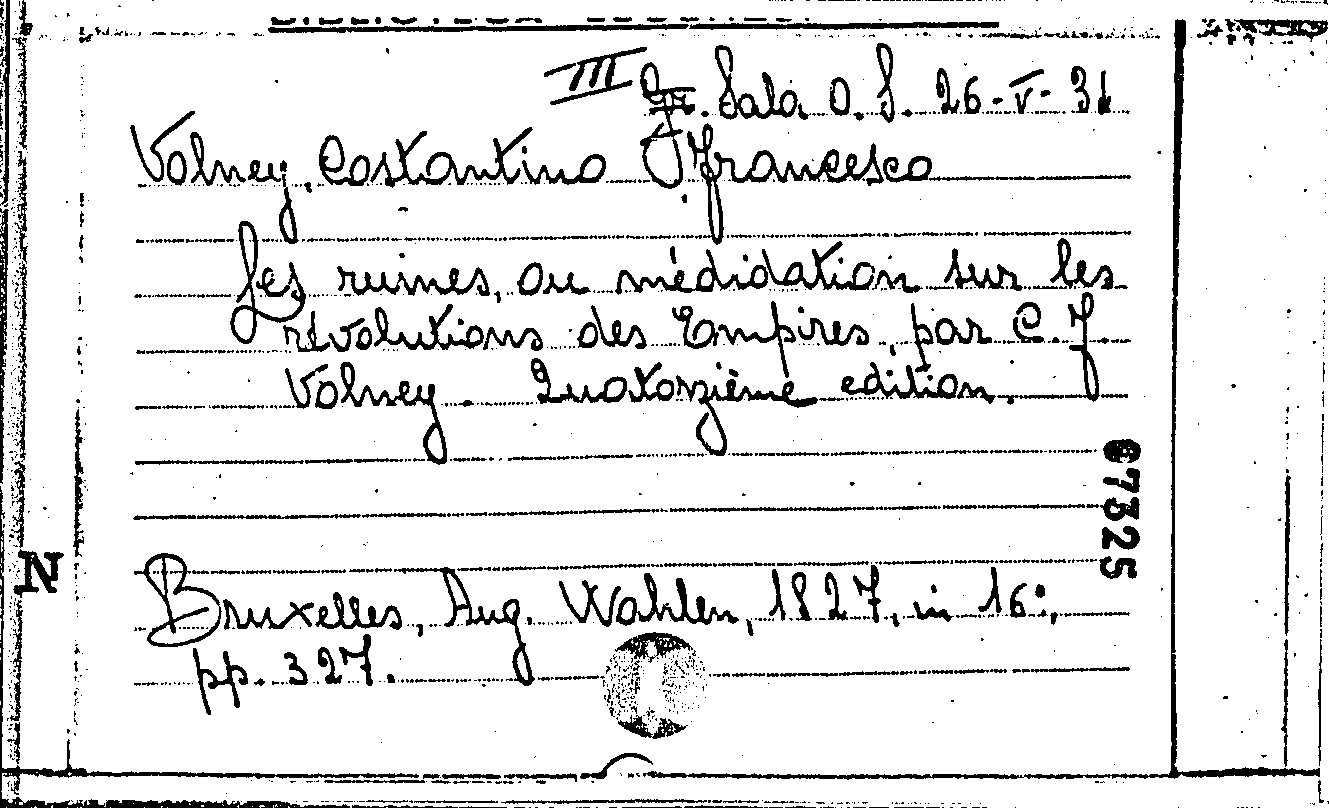 III Gr. Sala O. S. 26-V-31
Volney, Costantino Francesco
Les ruines, ou médidation sur les
révolutions des Empires, par C. F.
Volney. Quatorzième edition.
67325
N
Bruxelles, Aug. Wahlen, 1827, in 16°,
pp. 327.